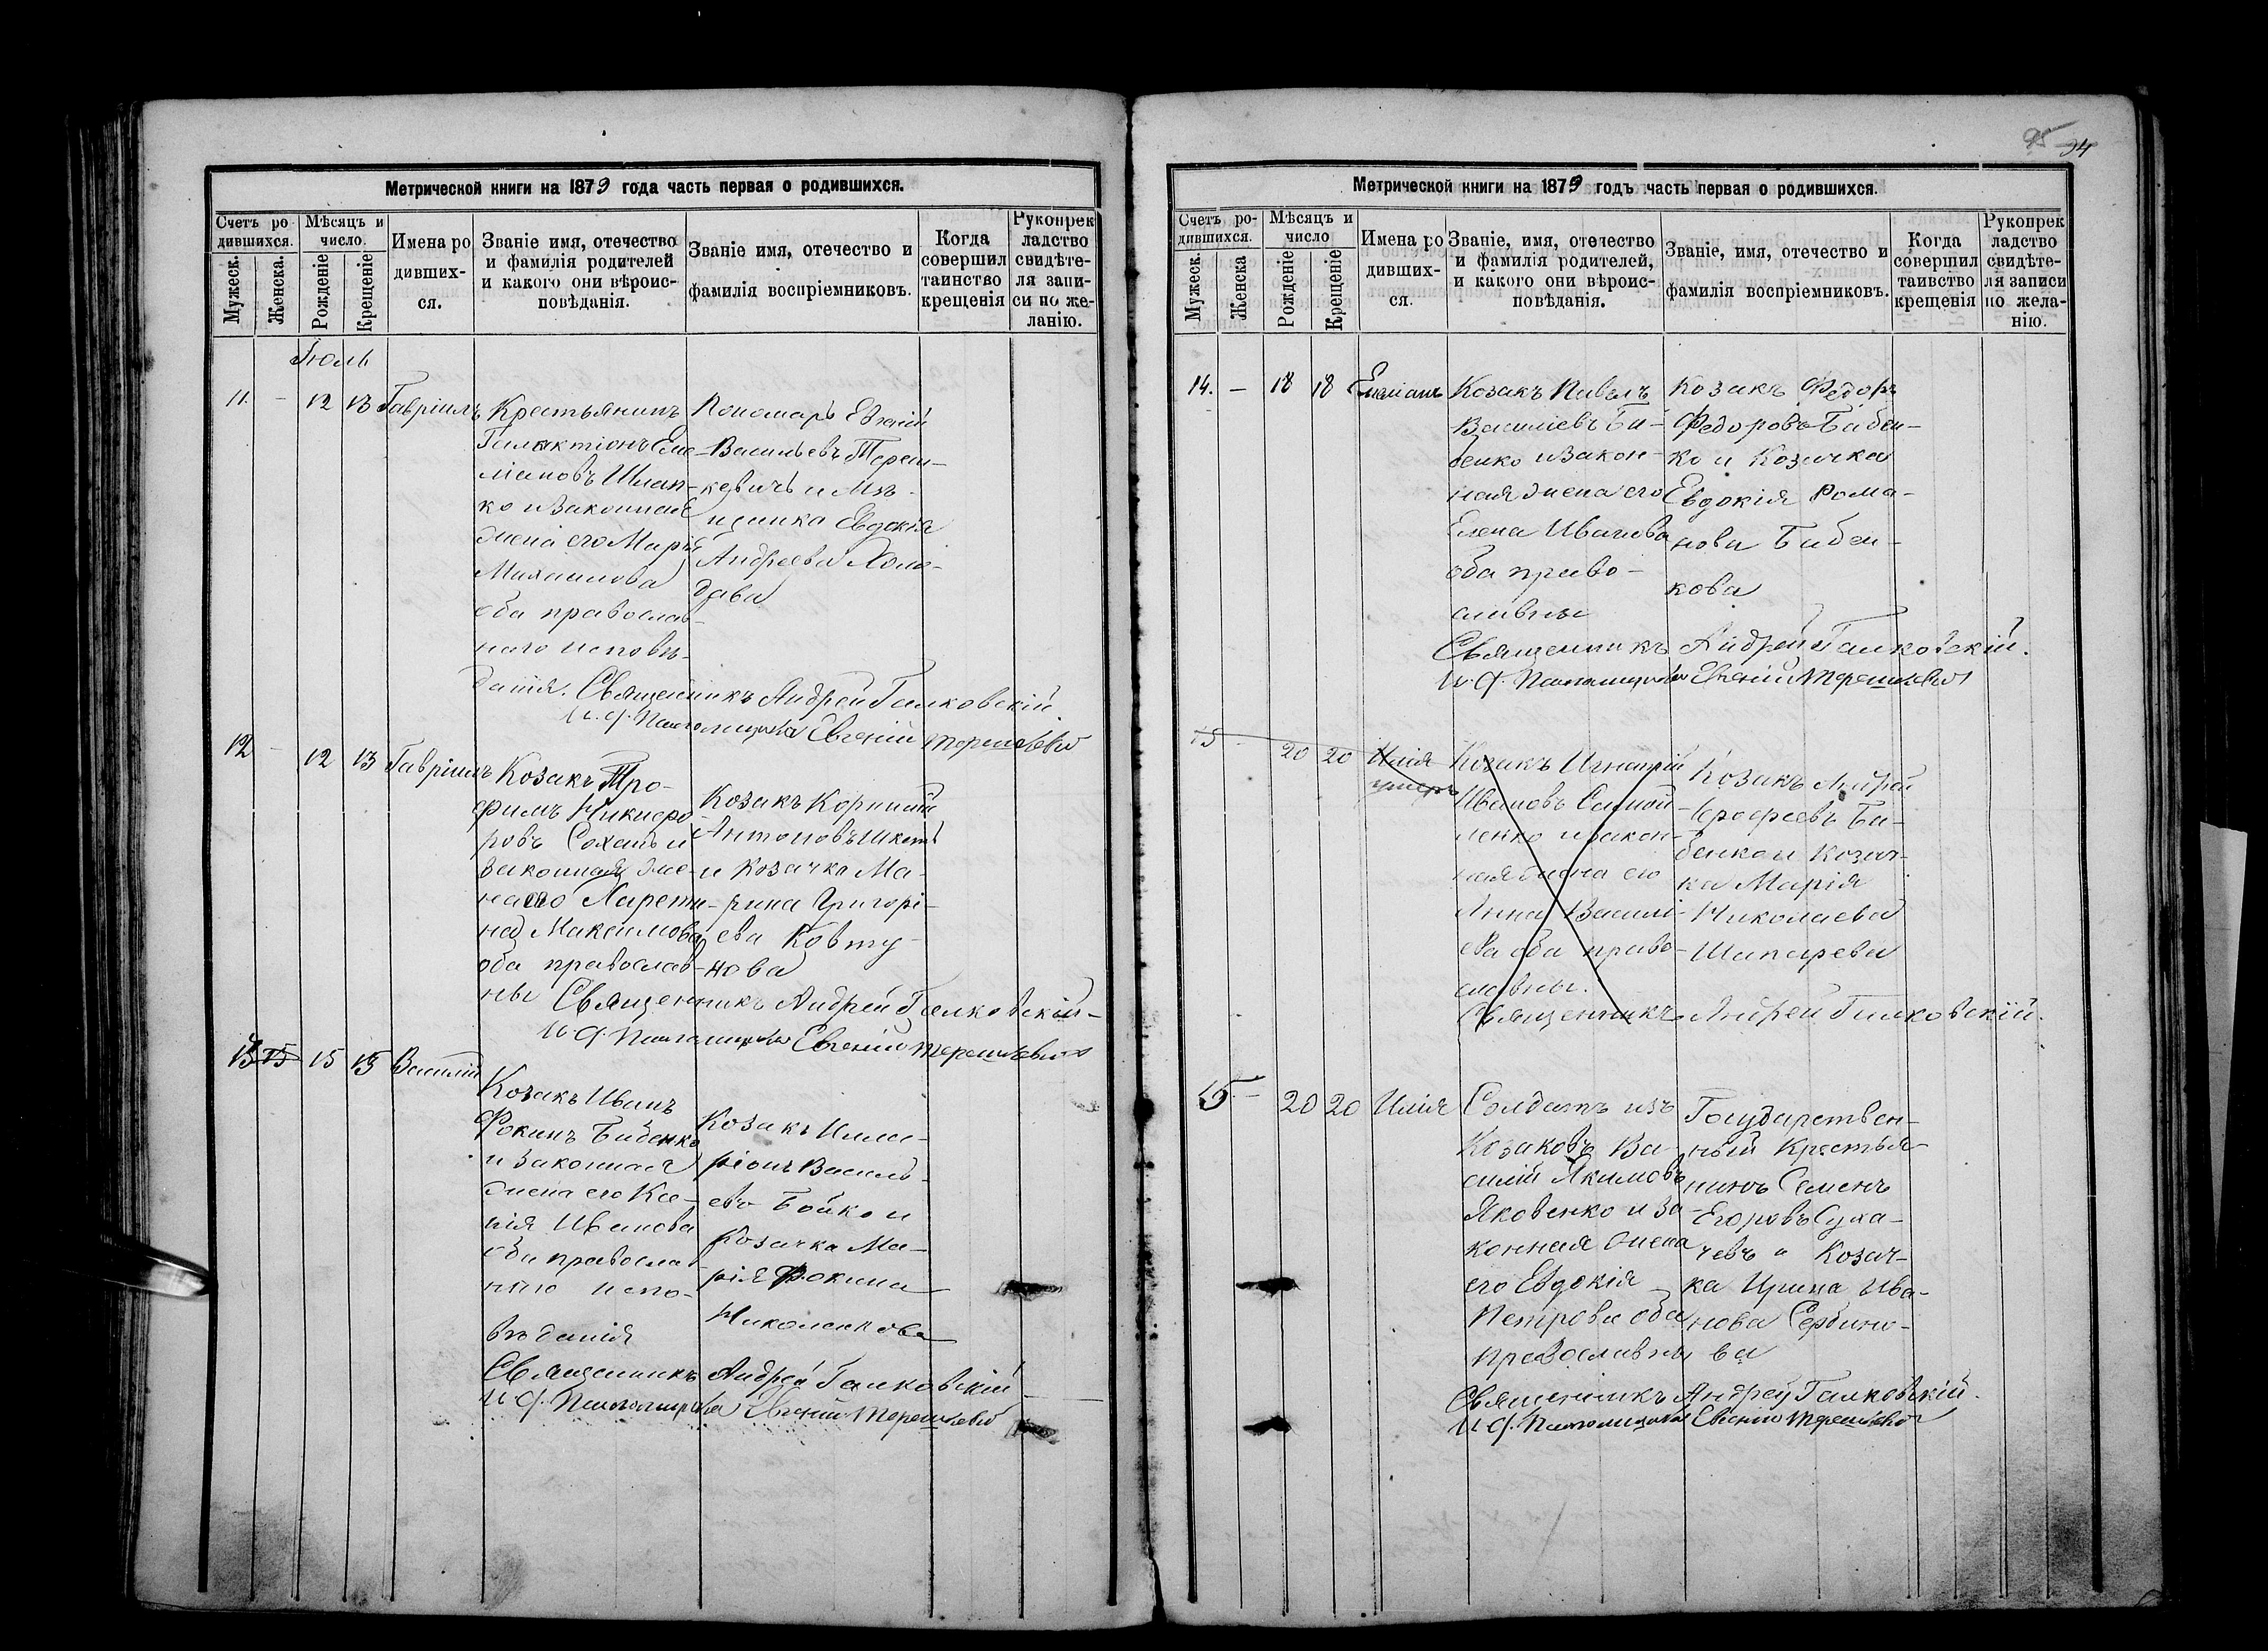 95 94
Метрической книги на 1879 года часть первая о родившихся.
Счетъ ро
дившихся.
Мужеск.
Женска.
Мѣсяцъ и
число.
Рожденіе
Крещеніе
Имена ро
дивших-
ся.
Званіе имя, отечество
и фамилія родителей
и какого они вѣроис-
повѣданія.
Званіе имя, отечество и
фамилія воспріемниковъ.
Когда
совершил
таинство
крещенія
Рукоприк
ладство
свидѣте-
ля запи-
си по же-
ланію.
Іюль
11. - 12 13 Гавріилъ
Крестьянинъ
Галактіонъ Еме-
ліановъ Шпап-
ко и законная
жена его Марія
Михаилова
оба православ-
наго исповѣ-
данія.
Пономарь Евгеній
Васильевъ Тереш-
кевичъ и Мѣ-
щанка Евдокія
Андреева Коло-
дава
Священникъ Андрей Галковскій
И. д. Псаломщика Евгеній Терешкевич
12 - 12 13 Гавріилъ
Козакъ Тро-
фимъ Никифо-
ровъ Сохань и
законная же-
на его Харети-
на Максимова
оба православ-
ны
Козакъ Корнилій
Антоновъ
и Козачка Ма-
рина Григорі-
ева Ковту-
нова
Священникъ Андрей Галковскій
И. д. Псаломщика Евгеній Терешкевич
13 15 15 15 Василій
Козакъ Иванъ
Фокинъ Бабенко
и законная
жена его Ксе-
нія Иванова
оба православ-
наго испо-
вѣданія
Козакъ Илла-
ріонъ Василь-
евъ Бойко и
Козачка Ма-
рія Фокина
Николенкова
Священникъ Андрей Галковскій
И. д. Псаломщика Евгеній Терешкевич
Метрической книги на 1879 годъ часть первая о родившихся.
Счетъ ро-
дившихся.
Мужеск.
Женска
Мѣсяцъ и
число
Рожденіе
Крещеніе
Имена ро
дивших-
ся.
Званіе, имя, отечество
и фамилія родителей,
и какого они вѣроис-
повѣданія.
Званіе, имя, отечество и
фамилія воспріемниковъ.
Когда
совершил
таивство
крещенія
Рукоприк
ладство
свидѣте-
ля записи
по жела-
нію.
14. - 18 18 Емиліанъ
Козакъ Павелъ
Василіевъ Ба-
бенко и закон-
ная жена его
Елена Иванова
оба право-
славны
Козакъ Федоръ
Федоровъ Бабен-
ко и Козачка
Евдокія Рома-
нова Бабен-
кова
Священникъ Андрей Галковскій.
И. д. Псаломщика Евгеній Терешкевич
15 - 20 20 Илія
умеръ
Козакъ Игнатій
Ивановъ Самой-
ленко и закон-
ная жена его
Анна Василі-
ева оба право-
славны.
Козакъ Андрей
Ерофеевъ Ба-
бенко и Козач-
ка Марія
Николаева
Шапарева
Священникъ Андрей Галковскій.
15 - 20 20 Илія
Солдатъ изъ
Козаковъ Ва-
силій Якимовъ
Яковенко и за-
конная жена
его Евдокія
Петрова оба
православны
Государствен-
ный Крестья-
нинъ Семенъ
Егоровъ Суха-
чевъ и Козач-
ка Ирина Ива-
нова Сербино-
ва
Священникъ Андрей Галковскій.
И. д. Псаломщика Евгеній Терешкевич